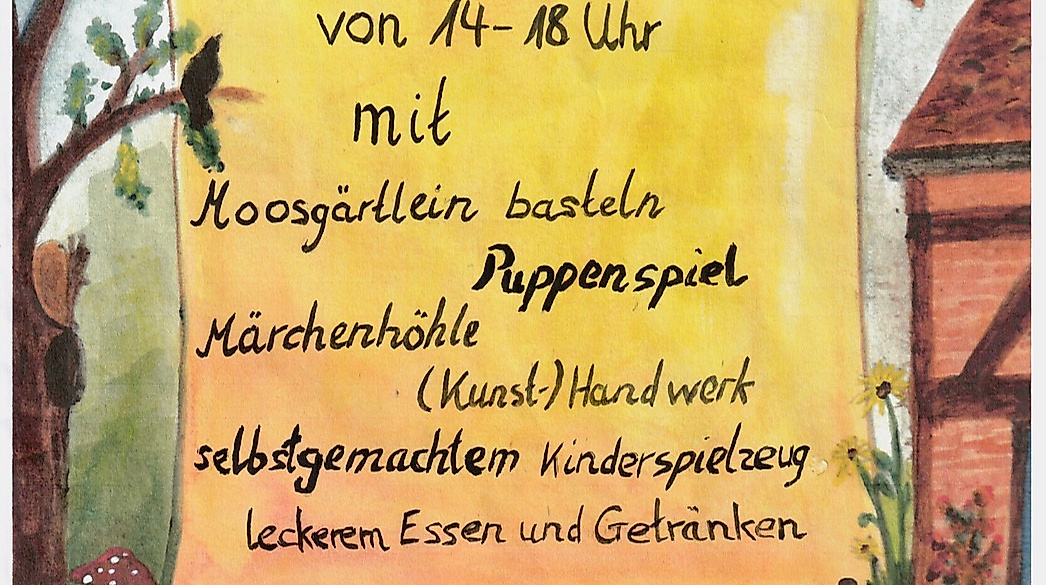 von 14-18 Uhr
mit
Moosgärtlein basteln
Puppenspiel
Märchenhöhle
(Kunst-)Handwerk
selbstgemachtem Kinderspielzeug
leckerem Essen und Getränken